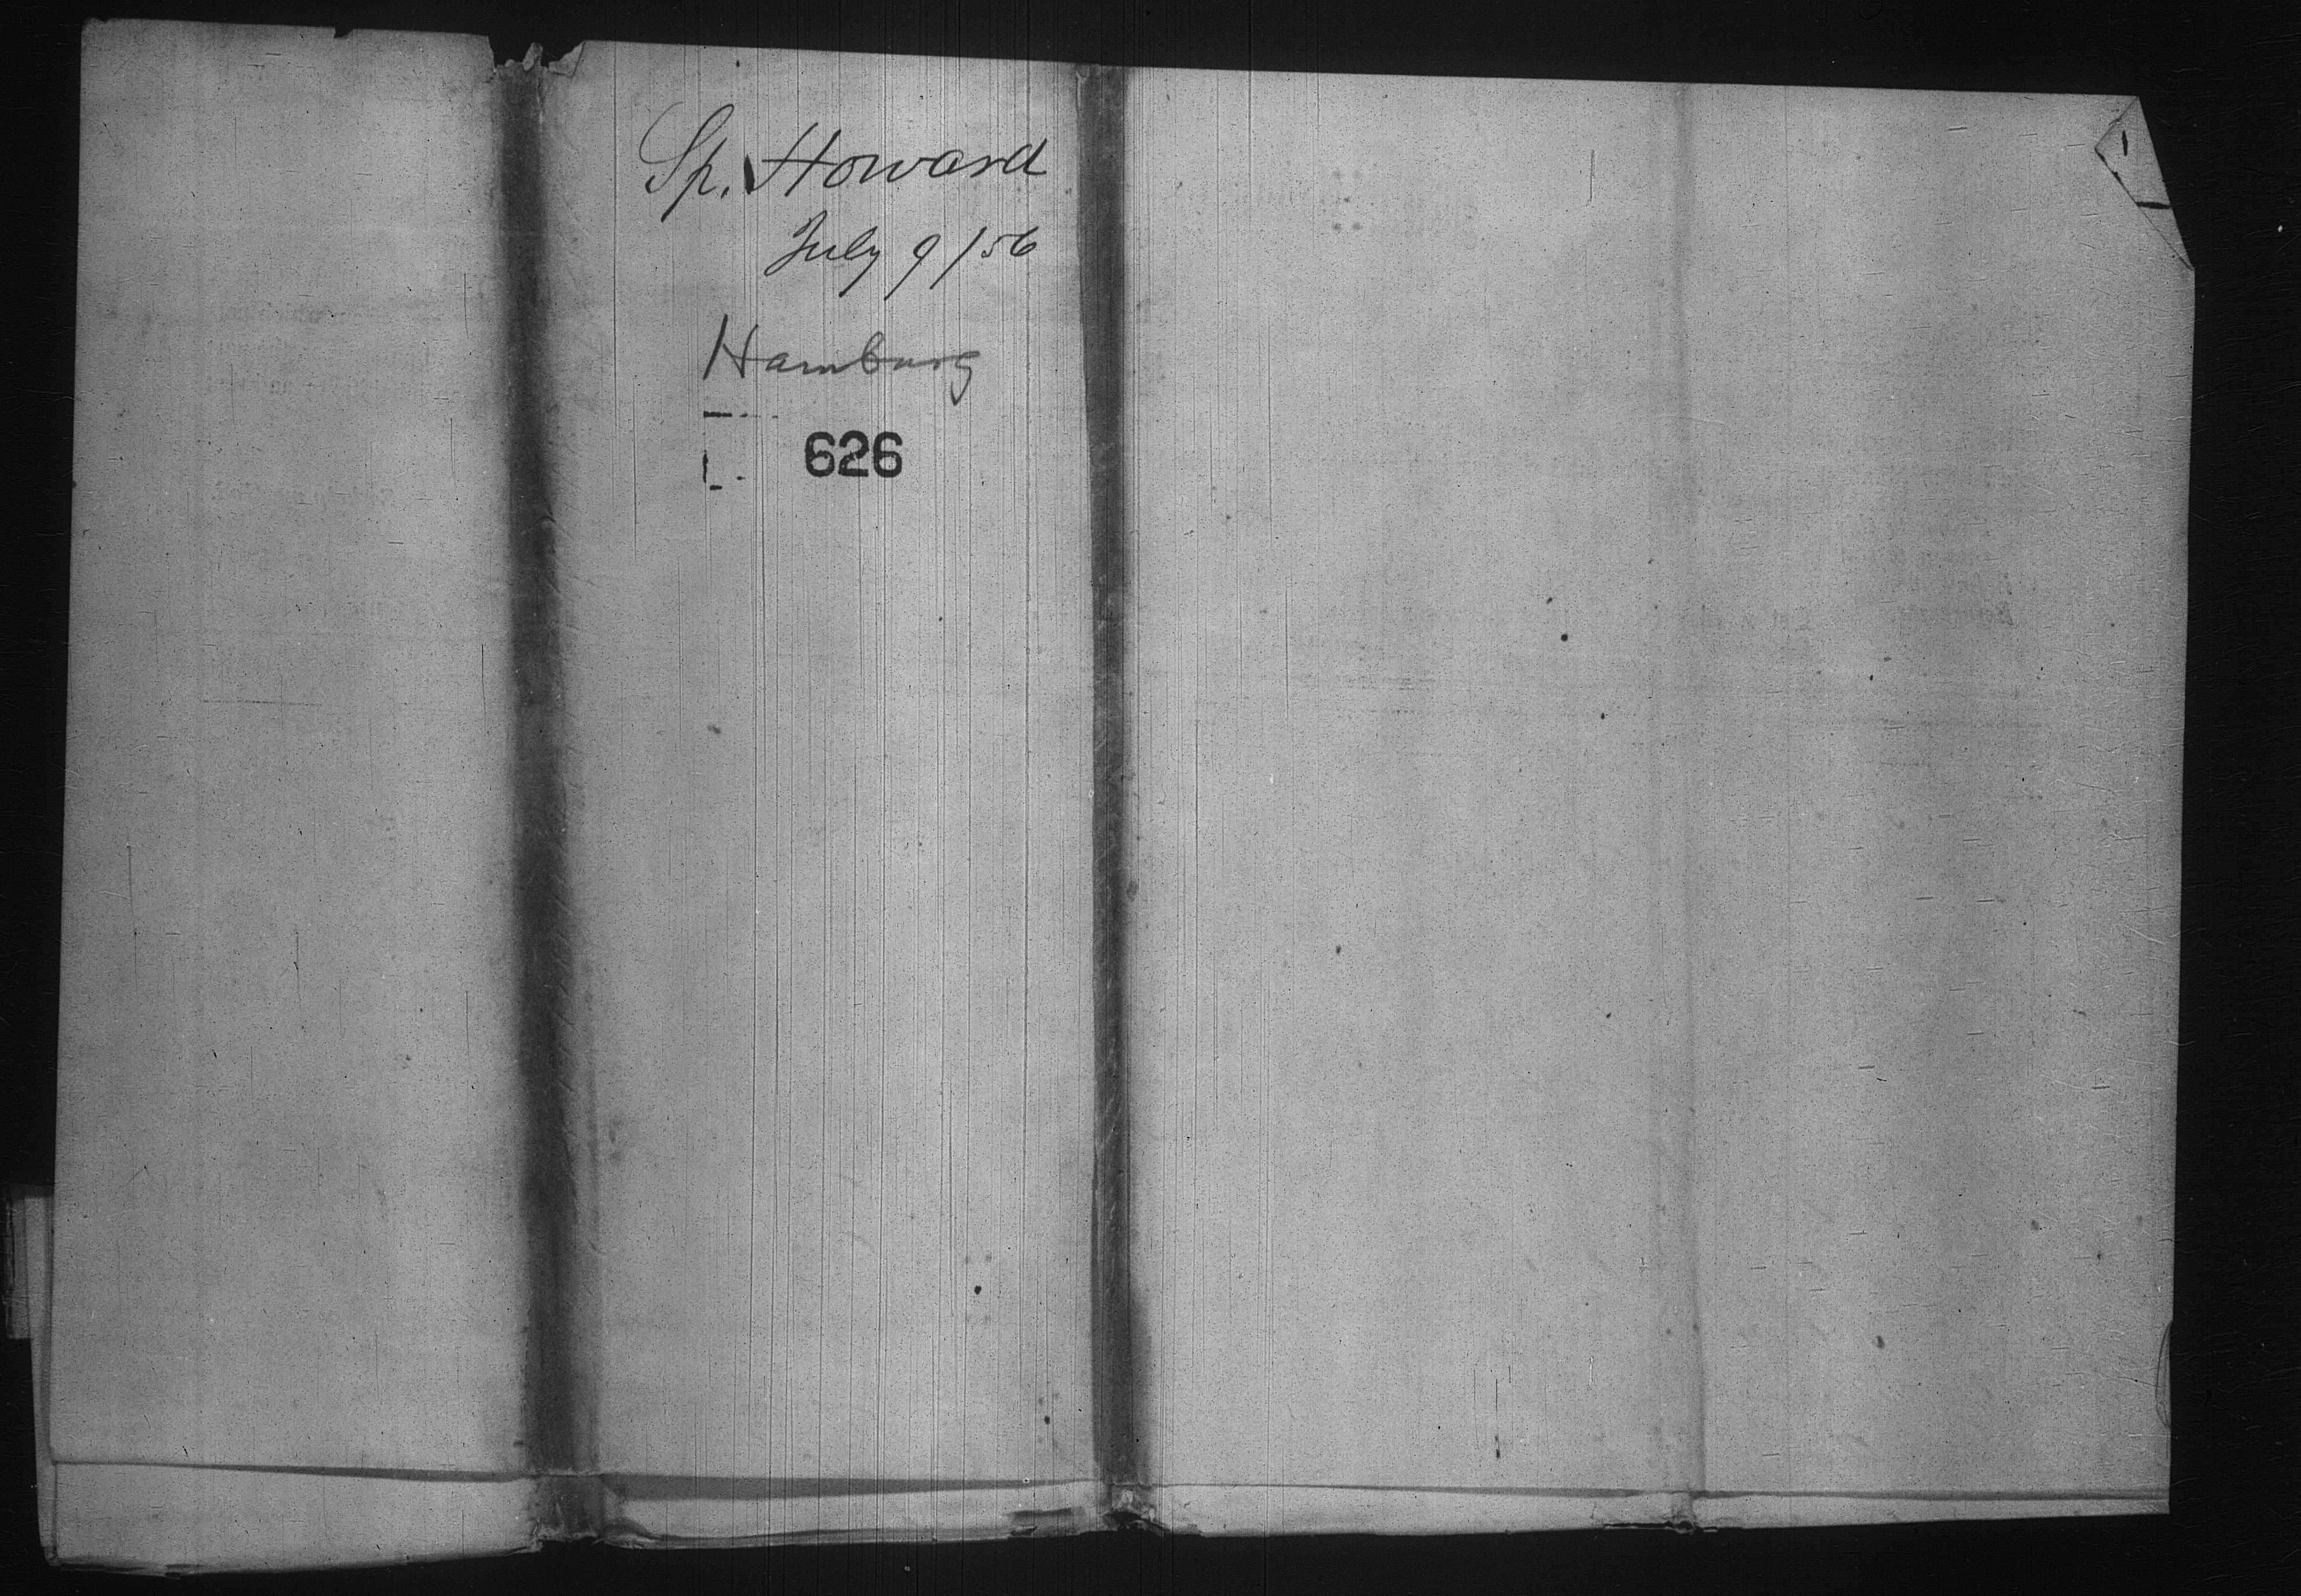 Sp. Howard
July 9/56
Hamburg
626